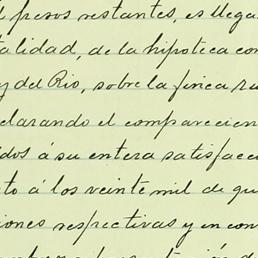 pesos restantes, es llega
talidad, de la hipoteca con
y del Rio, sobre la finca ru
clarando el comparecien
dos á su entera satisfacci
to á los veinte mil de qu
iones respectivas y en con